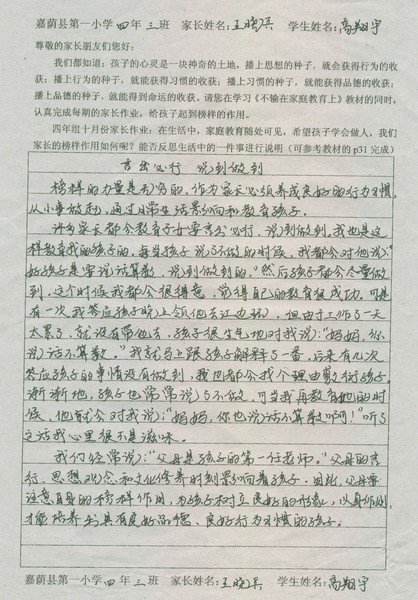 嘉荫县第一小学四年三班 家长姓名:王晓兵 学生姓名:高翔宇
尊敬的家长朋友们您好:
我们都知道:孩子的心灵是一块神奇的土地,播上思想的种子,就会获得行为的收
获;播上行为的种子,就能获得习惯的收获;播上习惯的种子,就能获得品德的收获;
播上品德的种子,就能得到命运的收获。请您在学习《不输在家庭教育上》教材的同时,
认真完成每期的家长作业,给孩子起到榜样的作用。
四年组十月份家长作业:在生活中,家庭教育随处可见,希望孩子学会做人,我们
家长的榜样作用如何呢?能否反思生活中的一件事进行说明(可参考教材的 p31 完成)
言出必行 说到做到
榜样的力量是无穷的,作为家长必须养成良好的行为习惯,
从小事做起,通过日常生活影响和教育孩子。
许多家长都会教育子女要言出必行,说到做到。我也是这
样教育我的孩子的,每当孩子说了不做的时候,我都会对他说:“
好孩子是要说话算数,说到做到的。”然后孩子都会尽量做
到,这个时候我都会很得意,觉得自己的教育很成功。可是
有一次我答应孩子晚上领他去江边玩,但由于工作了一天
太累了,就没有带他去,孩子很生气地对我说:“妈妈,你
说话不算数。”我就马上跟孩子解释了一番,后来有几次
答应孩子的事情没有做到,我也都会找个理由敷衍孩子。
渐渐地,孩子也常常说了不做,可当我再教育他的时
候,他就会对我说:“妈妈,你也说话不算数啊!”听了
这话我心里很不是滋味。
我们经常说:“父母是孩子的第一任老师。”父母的言
行、思想观念和文化修养时刻影响着孩子。因此,父母要
注意自身的榜样作用,为孩子树立良好的形象,以身作则,
才能培养出具有良好品德、良好行为习惯的孩子。
嘉荫县第一小学四年三班 家长姓名:王晓兵 学生姓名:高翔宇